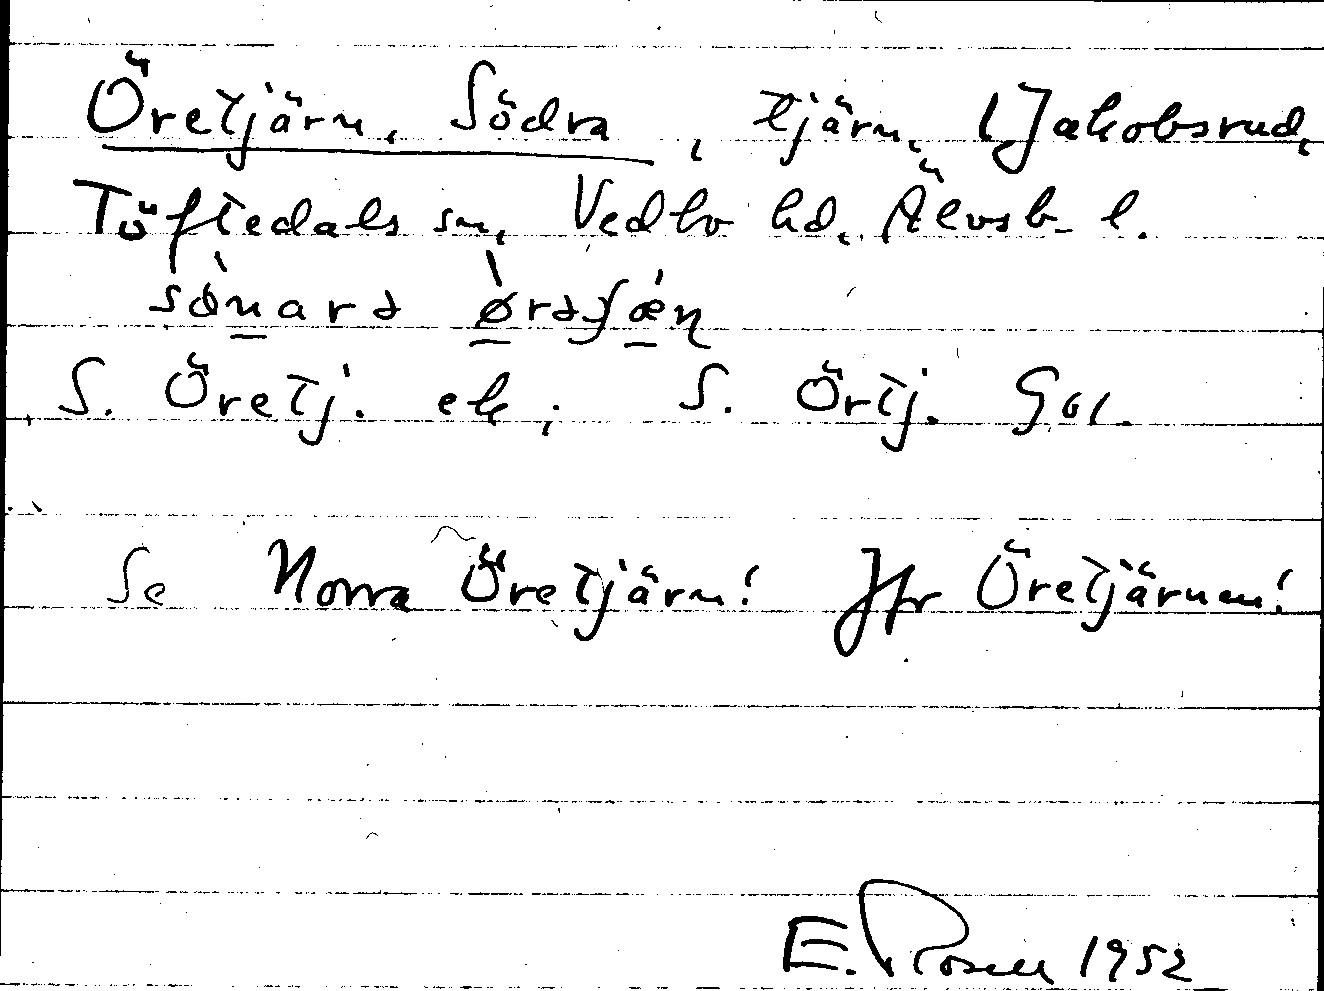 Öretjärn, Södra, tjärn, Jakobsrud,
Töftedals sn, Vedbo hd, Älvsb. l.
S. Öretj. ek; S. Örtj. GSK.
Se Norra Öretjärn! Jfr Öretjärnen!
E. Rosell 1952